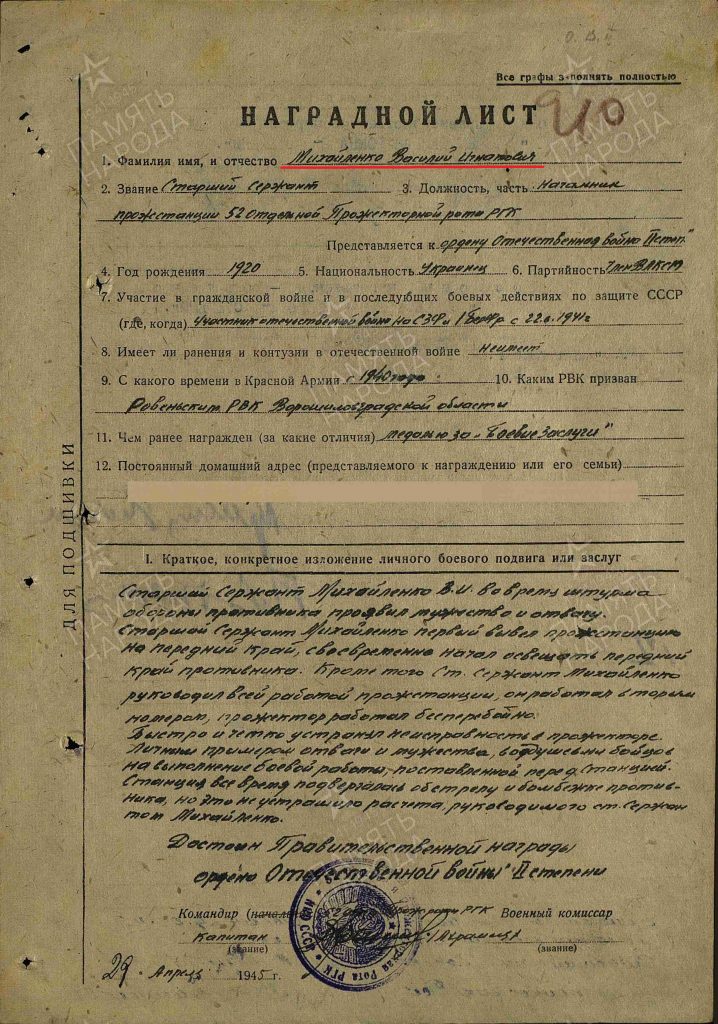 Все графы заполнять полностью
НАГРАДНОЙ ЛИСТ
1. Фамилия имя, и отчество Михайленко Василий Игнатович
2. Звание Старший Сержант 3. Должность, часть Начальник
прожстанции 52 отдельной Прожекторной рота РГК
Представляется к ордену Отечественная война II степ."
4. Год рождения 1920 5. Национальность Украинец 6. Партийность Член ВЛКСМ
7. Участие в гражданской войне и в последующих боевых действиях по защите СССР
(где, когда) Участник отечественной войны на СЗФ и 1 Бел.Фр с 22.6.1941г
8. Имеет ли ранения и контузии в отечественной войне неимеет
9. С какого времени в Красной Армии с 1940 года 10. Каким РВК призван
Ровеньским РВК Ворошиловградской области
11. Чем ранее награжден (за какие отличия) медалью за „Боевые Заслуги"
12. Постоянный домашний адрес (представляемого к награждению или его семьи)
ДЛЯ ПОДШИВКИ
I. Краткое, конкретное изложение личного боевого подвига или заслуг
Старший Сержант Михайленко В.И. во время штурма
обороны противника проявил мужество и отвагу.
Старшай Сержант Михайленко первый вывел прожстанцию
на передний край, своевременно начал освещать передний
край противника. Кроме того Ст. Сержант Михайленко
руководил всей работой прожстанции, он работал вторым
номером, прожектор работал бесперебойно.
Быстро и четко устранял неисправность в прожекторе.
Личным примером отваги и мужества, водушевлял бойцов
на выполнение боевой работы, поставленной перед Станцией.
Станция все время подвергалась обстрелу и бомбежке против-
ника, но это не устрашило расчета, руководимого ст. Сержан
том Михайленко.
Достоин Правительственной награды
ордена Отечественной войны" II степени
Командир (началь РГК Военный комиссар
Капитан
(звание) (звание)
29 Апрель 1945 г.
ПАМЯТЬ НАРОДА